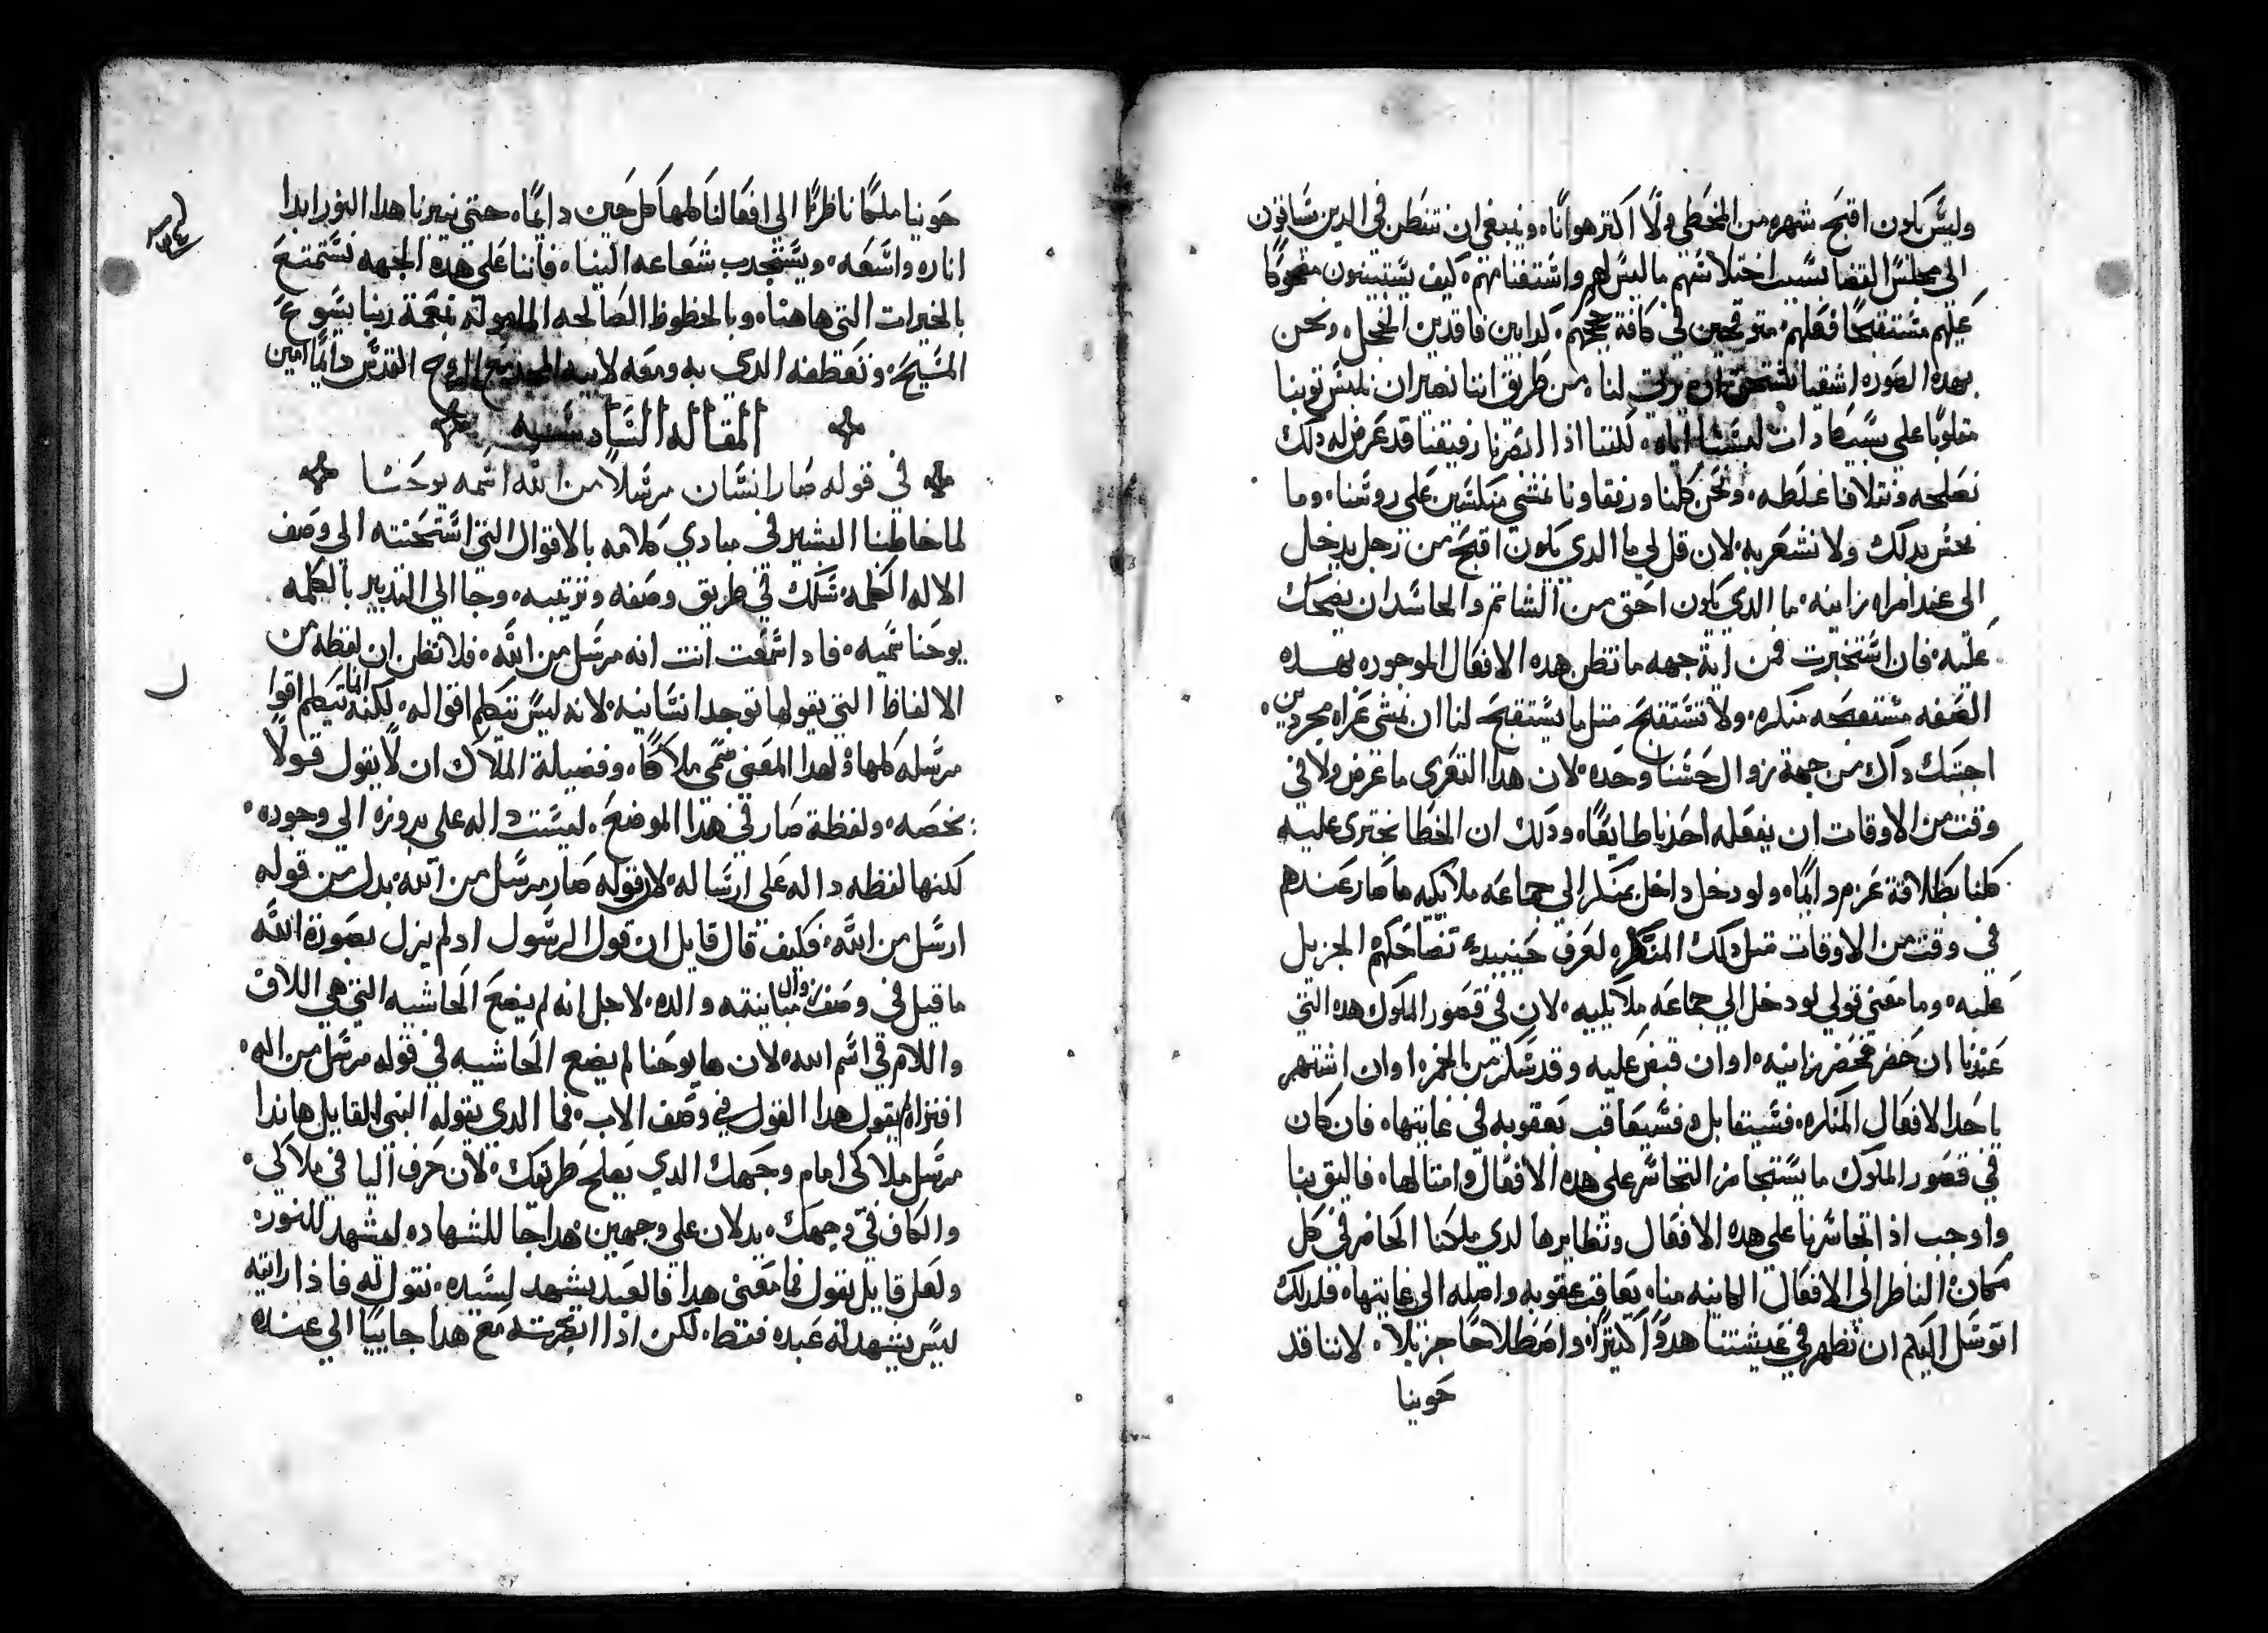 وليس يكون اقبح شهره من المخطي ولا اكتر هوانًا، وينبغي ان نتفطن في الدين يساقون
الى مجلس القضا بسبب اختلاسهم ما ليس لهم واستفنانهم، كيف يستبينون مضحوكًا
عليهم مستقبحًا فعلهم، متوقحين في كافة حججهم، كدابين فاقدين الخجل، ونحن
بهده الصوره اشقيا نستحق ان يرتى لنا، من طريق اننا نصير ان نلبس توبنا
مقلوبًا على بسيط دات لبسنا اياه، لكننا ادا ابصرنا رفيقنا قد عرض له دلك
نصلحه ونتلافا غلطه، ونحن كلنا ورفقاونا نمشي منكسين على روسنا، وما
نحس بدلك ولا نشعر به، لان قل لي ما الدي يكون اقبح من رجل يدخل
الى عند امراه زانيه، ما الدي يكون احق من الشاتم والحاسد ان يضحك
عليه، فان استخبرت فمن اية جهه ما تظن هده الافعال الموجوده بهده
الصفه مستقبحه منكره، ولا تستقبح متل ما يستقبح لنا ان نمشي عراه مجردين،
اجبتك داك من جهة زوال حسنا وحده، لان هدا التعري ما عرض ولا في
وقت من الاوقات ان يفعله احدنا طايعًا، ودلك ان الخطا يجتري عليه
كلنا بطلاقة عزم دايمًا، ولو دخل داخل بمنكر الي جماعه ملايكيه ما صار عندهم
في وقت من الاوقات متل دلك المنكره لعرف حينيدٍ تضاحكهم الجزيل
عليه، وما معنى قولي لو دخل الي جماعه ملايكيه، لان في قصور الملوك هده التي
عندنا ان حضر محضر زانيه، او ان قبض عليه وقد سكر من الخمر، او ان اشتهر
باحد الافعال المنكره، فسيقابل وفسيعاقب بعقوبه في غايتها، فان كان
في قصور الملوك ما يستجاز التجاسر على هده الافعال وامتالها، فاليق بنا
واوجب ادا تجاسرنا على هده الافعال ونظايرها لدي ملكنا الحاضر في كل
مكان الناظر الي الافعال الكاينه منا، يعاقب عقوبه واصله الى غايتها، فلدلك
اتوسل اليكم ان نظهر في عيشتنا هدوًا كتيرًا، واصطلاحًا جزيلًا، لاننا قد
حوينا
حوينا ملكًا ناظرًا الى افعالنا كلها كل حين دايمًا، حتى نيرنا هدا النور ابدا
اناره واسعه، ويستجدب شعاعه الينا، فاننا على هده الجهه نستمتع
بالخيرات التي هاهنا، وبالحظوظ الصالحه الماموله بنعمة ربنا يسوع
المسيح، وتعطفه الدي به ومعه لابيه المجد مع الروح القدس دايمًا امين
المقاله السادسه
في قوله صار انسان مرسلًا من الله اسمه يوحنا
لما خاطبنا البشير في مبادي كلامه بالاقوال التي استحتته الى وصف
الاله الكلمه، سلك في طريق وصفه وترتيبه، وجا الي النديير بالكلمه
يوحنا سميه، فادا سمعت انت انه مرسل من الله، فلا تظن ان لفظه من
الالفاظ التي يقولها توجد انسانيه، لانه ليس يتكلم اقواله، لكنه انما يتكلم اقوا
مرسله كلها، ولهدا المعنى سمي ملاكًا، وفضيلة الملاك ان لا يقول قولًا
يخصه، ولفظة صار في هدا الموضع، ليست داله على بروزه الي وجوده،
لكنها لفظه داله على ارساله، لان قوله صار مرسل من الله، بدل من قوله
ارسل من الله، فكيف قال قايل ان قول الرسول اد لم يزل بصورة الله
ما قيل في وصف زوال مباينته والده، لاجل انه لم يضع الحاشيه التي هي اللاف
واللام في اسم الله، لان ها يوحنا لم يضع الحاشيه في قوله مرسل من الله،
افتراه يقول هدا القول في وصف الاب، فما الدي يقوله النبي القايل هاندا
مرسل ملاكى امام وجهك الدي يصلح طريقك، لان حرف اليا في ملاكي،
والكاف في وجهك، يدلان على وجهين، هدا جا للشهاده ليشهد للنور،
ولعل قايل يقول فما معنى هدا، فالعبد يشهد لسيده، نقول له فاذا رايته
ليس يشهد له عبده فقط، لكن اذا ابصرته مع هدا جاييا الي عنده